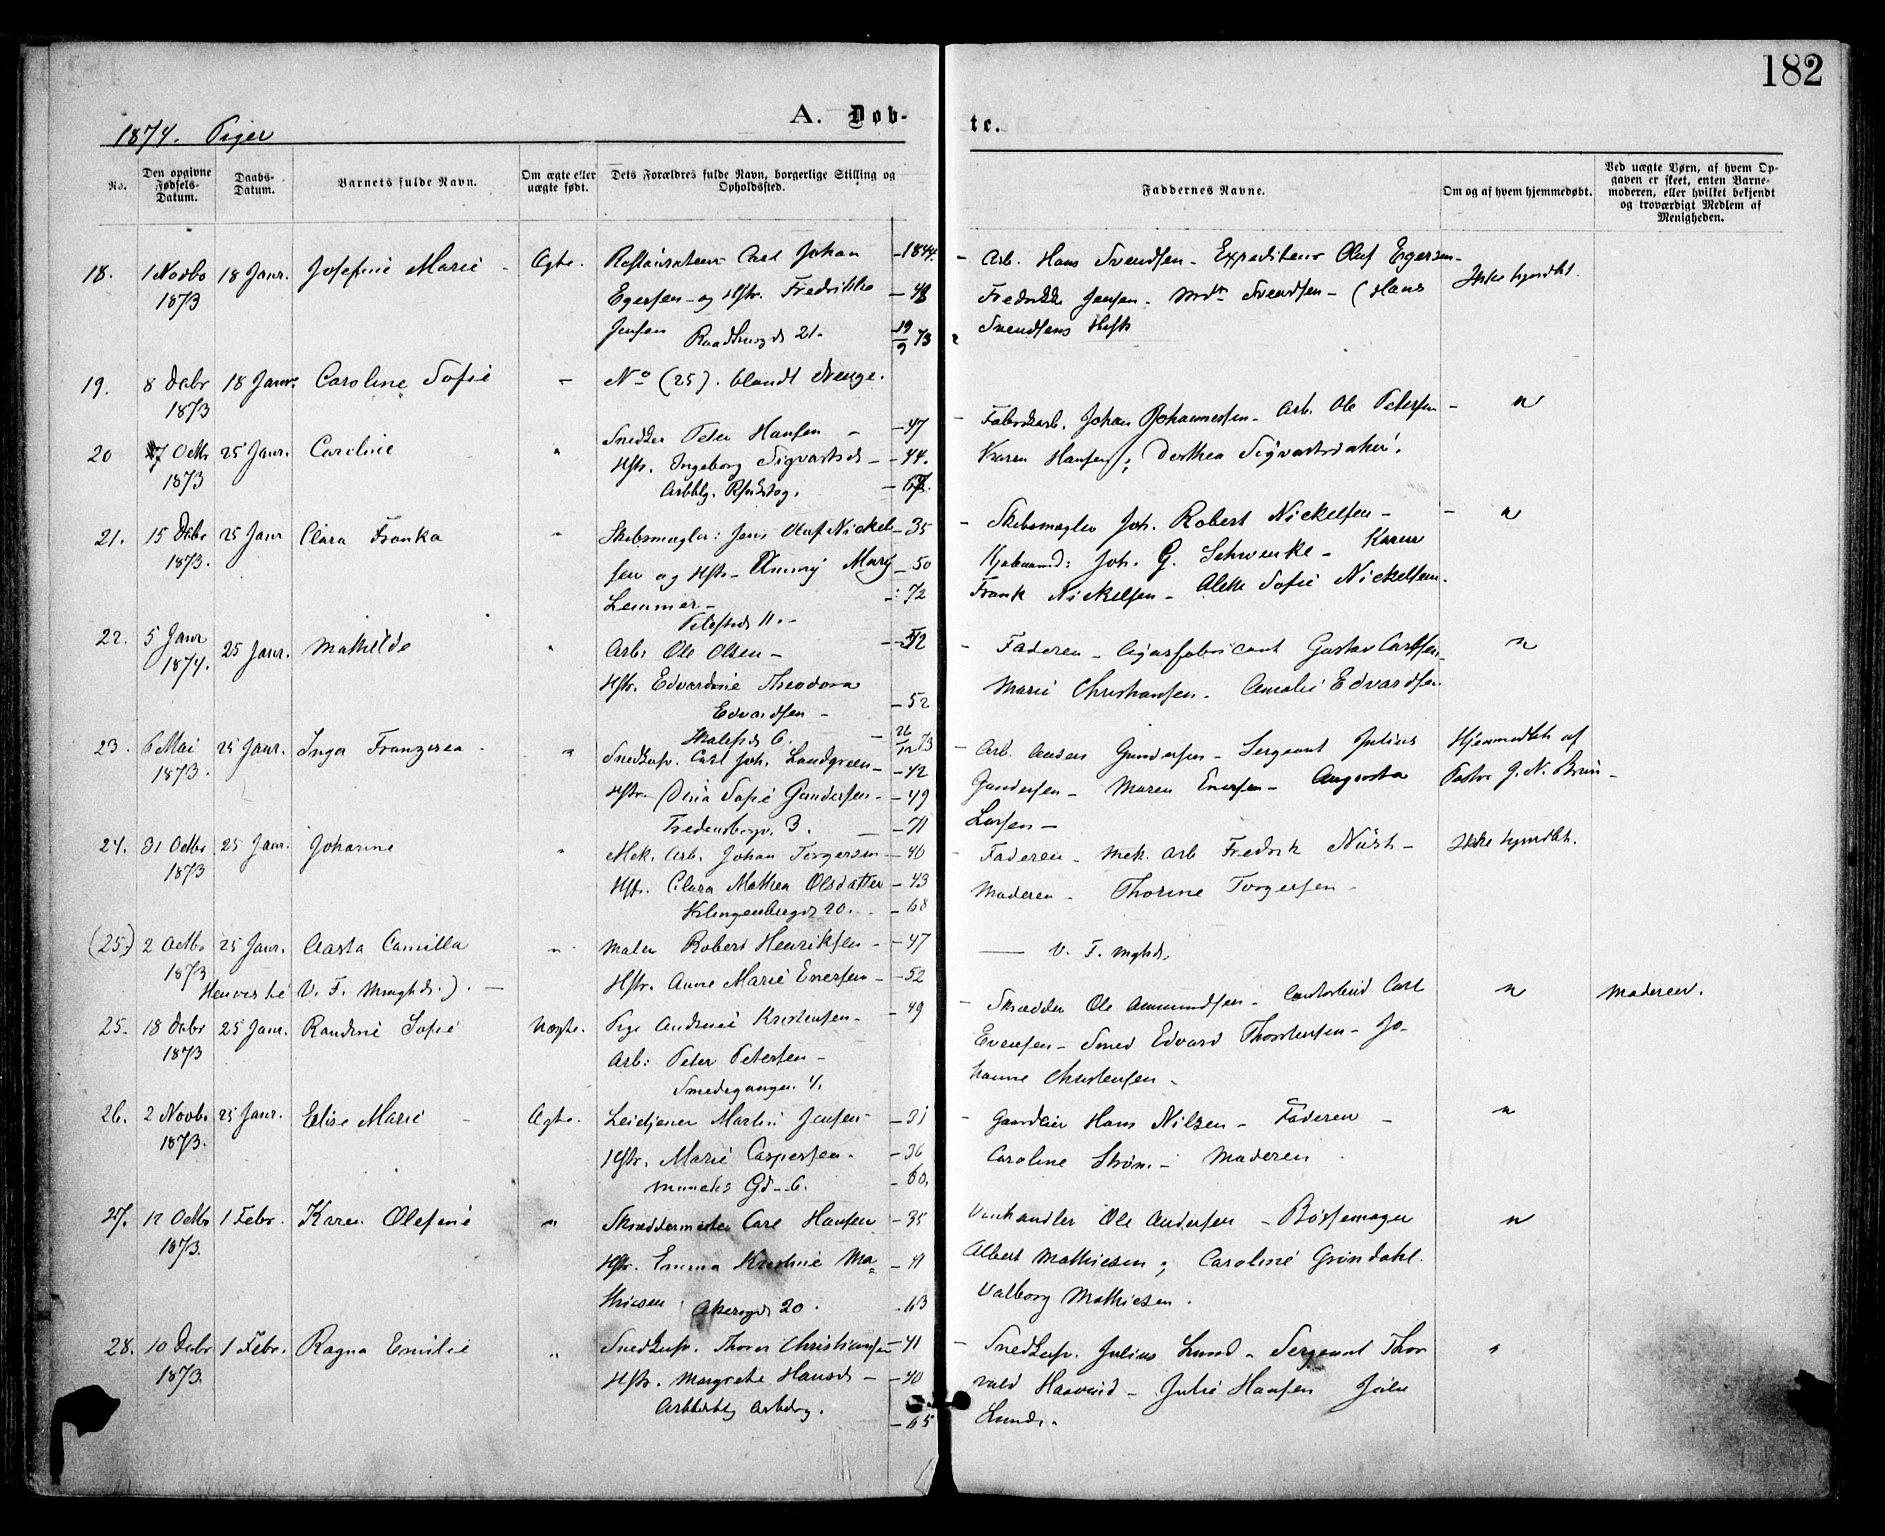 182
A. Døb-
te.
1874. Piger
No.
Den opgivne Fødsels-Datum.
Daabs-Datum.
Barnets fulde Navn.
Om ægte eller uægte født.
Dets Forældres fulde Navn, borgerlige Stilling og Opholdssted.
Faddernes Navne.
Om og af hvem hjemmedøbt.
Ved uægte Børn, af hvem Opgaven er skeet, enten Barnemoderen, eller hvilket bekjendt og troværdigt Medlem af Menigheden.
18. 1 Novbr 18 Janr. Josefine Marie Ægte. Restaurateur Carl Johan - 1844. Arb. Hans Svendsen - Expediteur Oluf Egersen - Ikke hjmdbt.
1873 Egersen - og Hstr. Fredrikke - 48 Fredrikke Jensen - Mdm Svendsen - (Hans
Jensen Raadhusgd 21. 19/9 73 Svendsens Hstr
19. 8 Decbr 18 Janr. Caroline Sofie - No (25). blandt Drenge.
1873
20 7 Octbr 25 Janr. Caroline " Snedker Peter Hansen - 47 Fabrikarb. Johan Johannessen - Arb. Ole Petersen - "
1873 Hstr. Ingeborg Sigvartsd - 44. Karen Hansen; Dorthea Sigvartsdatter.
21. 15 Decbr 25 Janr Clara Franka " Skibsmægler: Jens Oluf Nickel - 35 - Skibsmægler Joh. Robert Nickelsen - "
1873. sen og Hstr - Mary - 50 Kjøbmand: Joh. G. Schwenke - Karen
Lemmer - 72 Frank Nickelsen - Sofie Nickelsen.
Pilestrd 11.
22. 5 Janr 25 Janr. Mathilde " Arb. Ole Olsen - - Faderen - Cigarfabricant Gustav Carlsen - "
1874. Hstr. Edvardine Theodora Marie Christiansen - Amalie Edvardsen
Edvardsen - - 52
6. 26/12 73
23. 6 Mai 25 Janr. Inga Franzisca " Snedksv. Carl Joh. Landgreen - 42 - Arb. Anders Gundersen - Sergeant Julius Hjemmedbt af
1873. Hstr. Dina Sofie Gundersen - 49 Gundersen - Maren Enersen - Augusta Pastor J. N. Brun -
Fredensborgv. 3. - 71 Larsen -
24. 31 Octbr 25 Janr. Johanne " Mek. Arb. Johan Torgersen - 40 - Faderen - Mek. Arb Fredrik - Ikke hjmdbt.
1873 Hstr. Clara Mathea Olsdatter - 43 Moderen - Thorine Torgersen -
Klingenberggd 20. - 68
(25.) 2 Octbr 25 Janr. Aasta Camilla " Maler Robert Henriksen - 47 - V. F. Mghd.
1873 Hstr. Anne Marie Enersen - 52
Henvist til V. F. Mnghd.). -
25. 18 Decbr 25 Janr. Randine Sofie Uægte. Pige Andrine Kristensen - 49 - Skrædder Ole Ammundsen - Carl " Moderen.
1873 Arb: Peter Petersen - Evensen - Smed Edvard Thorstensen - Jo-
Smedegangen 4. hanne Christensen -
26. 2 Novbr 25 Janr. Elise Marie - Ægte. Leietjener Martin Jensen - 31 - Hans Nilsen - Faderen - "
1873. Hstr. Marie Caspersen. - 36 Caroline Strøm - Moderen
Gd - 6. - 60.
27. 12 Octbr 1 Febr. Karen Olefine " Skræddermester Carl Hansen - 35 Ole Andersen - Bøssemager "
1873. Hstr. Emma Kristine Ma= - 41 Albert Mathiesen; Caroline Grøndahl.
thiesen Akersgd 20. - 63 Valborg Mathiesen.
28. 10 Decbr 1 Febr. Ragna Emilie " Snedksv. Thorer Christiansen - 41 - Snedksv. Julius Lund - Sergeant Thor "
1873. Hstr. Margrethe Hansd - 40 vald - Julie Hansen
- 65 Lund.